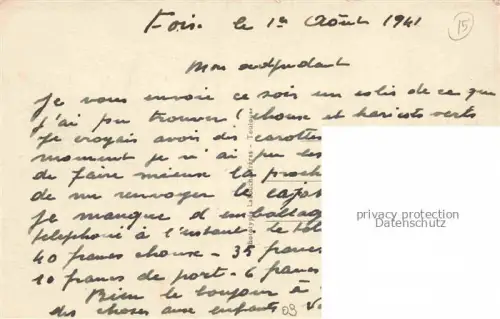 Foix. le 1er Août 1941
15
Mon adjudant
Je vous envoie ce soir un colis de ce que
j'ai pu trouver (choux et haricots verts
Je croyais avoir des carottes
moment je n'ai pu les
de faire mieux la proch
de me renvoyer le
Je manque d'emballag
téléphoné à l'instant
40 francs choux - 35 francs
10 francs de port - 6 francs
Bien le bonjour à
des choses aux enfants
09
privacy protection
Datenschutz